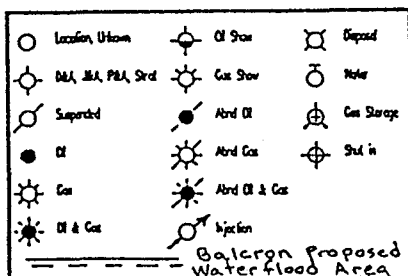 Location, Unknown
D&A, J&A, P&A, Strat
Suspended
Oil
Gas
Oil & Gas
Oil Show
Gas Show
Abnd Oil
Abnd Gas
Abnd Oil & Gas
Injection
Disposal
Water
Gas Storage
Shut in
Balcron proposed
Waterflood Area